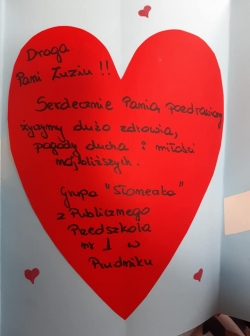 Droga
Pani Zuziu !!
Serdecznie Panią pozdrawiamy
życzymy dużo zdrowia,
pogody ducha i miłości
najbliższych.
Grupa "Słoneczka"
z Publicznego
Przedszkola
nr 1 w
Prudniku